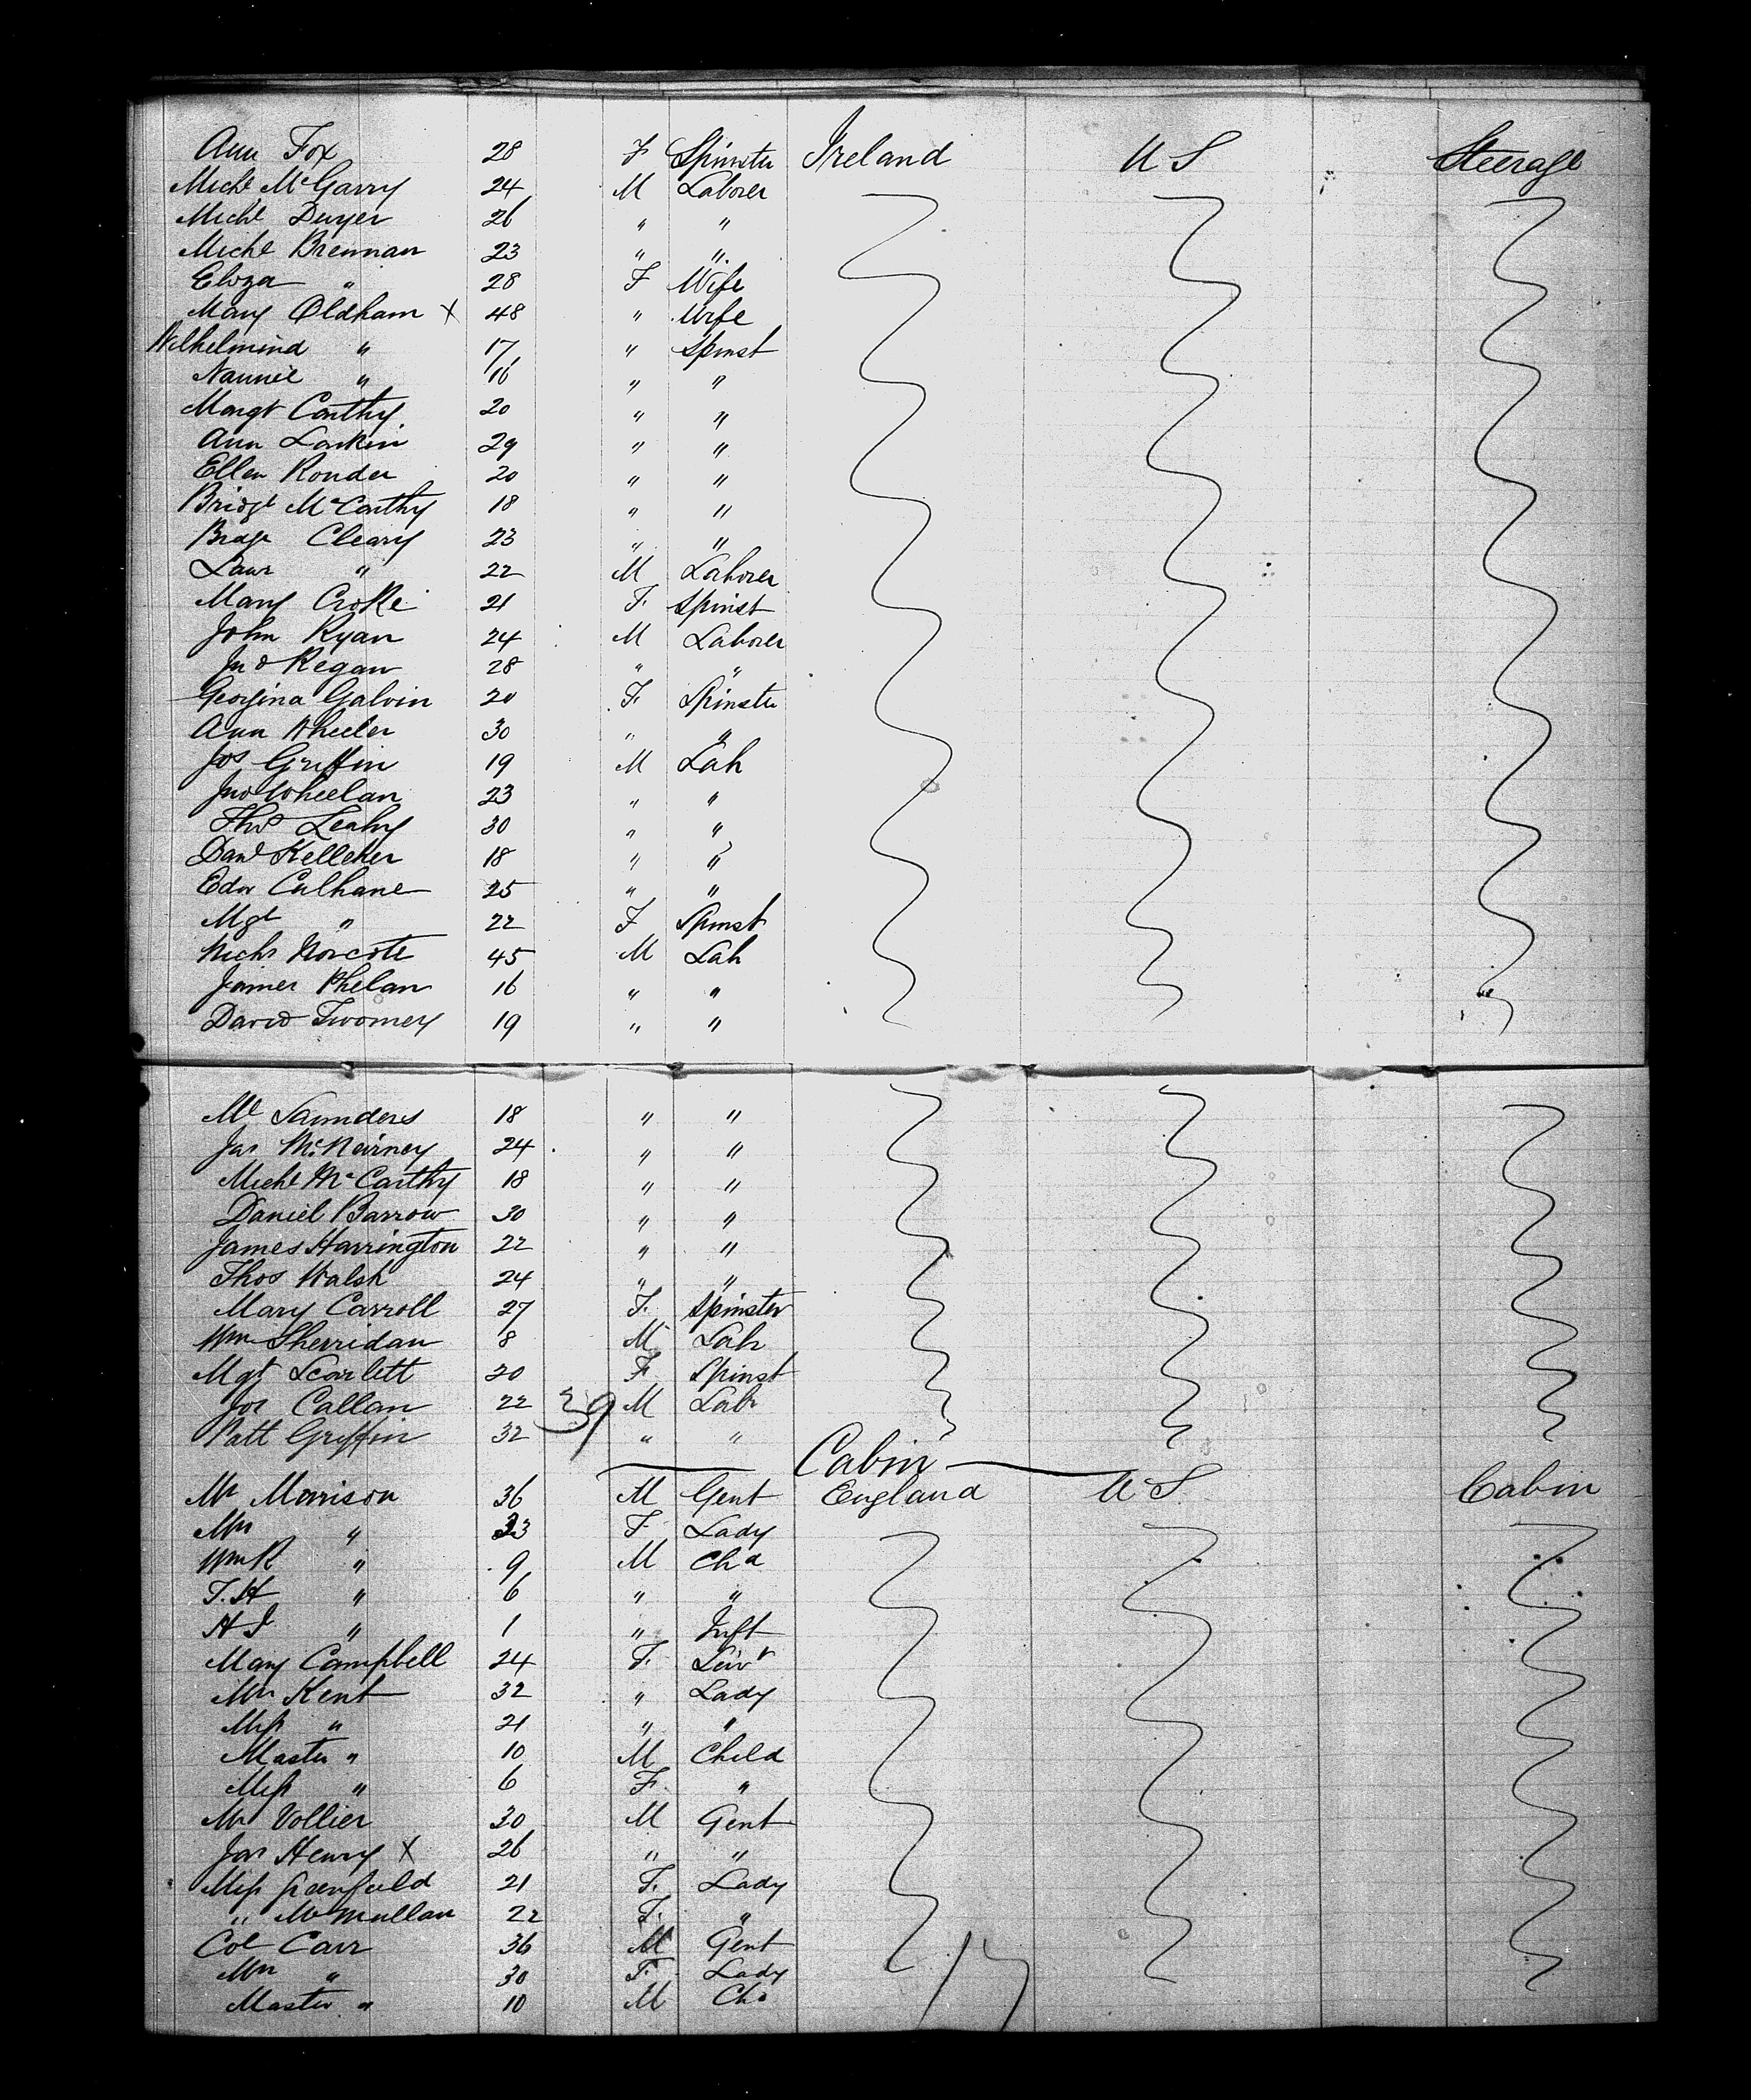 Ann Fox 28 F Spinster Ireland U S Steerage
Michl McGarry 24 M Laborer
Michl Dwyer 26 " "
Michl Brennan 23 " "
Eliza " 28 F Wife
Mary Oldham X 48 " Wife
Wilhelmina " 17 " Spinst
Nannie " 16 " "
Margt Carthy 20 " "
Ann Larkin 29 " "
Ellen 20 " "
Bridgt McCarthy 18 " "
Bridgt Cleary 23 " "
Laur " 22 M Laborer
Mary Croke 21 F. Spinst
John Ryan 24 M Laborer
Jno Regan 28 " "
Georgina Galvin 20 F. Spinster
Ann Wheeler 30 " "
Jos Griffin 19 M Lab
Jno Wheelan 23 " "
Thos Leahy 30 " "
Danl Kelleher 18 " "
Edw Culhane 25 " "
Mgt " 22 F Spinst
Nichs Norcote 45 M Lab
James Phelan 16 " "
David Twomey 19 " "
Saunders 18 " "
Jas McNeirney 24 " "
Michl McCarthy 18 " "
Daniel Barrow 30 " "
James Harrington 22 " "
Thos Walsh 24 " "
Mary Carroll 27 F. Spinster
Wm Sherridan 8 M Labr
Mgt Scarlett 20 F. Spinst
Jos Callan 22 39 M Labr
Patt Griffin 32 " "
Cabin
Mr Morrison 36 M Gent England U S Cabin
Mrs " 33 F Lady
Wm R " 9 M Chd
T. H " 6 " "
H " 1 " Inft
Mary Campbell 24 F. Servt
Mrs Kent 32 " Lady
Miss " 21 " "
Master " 10 M Child
Miss " 6 F. "
Mr Vollier 30 M Gent
Jas Henry X 26 " "
Miss Grenfield 21 F. Lady
" McMullan 22 F. "
Col Carr 36 M Gent
Mrs " 30 F. Lady
Master " 10 M Chd
17